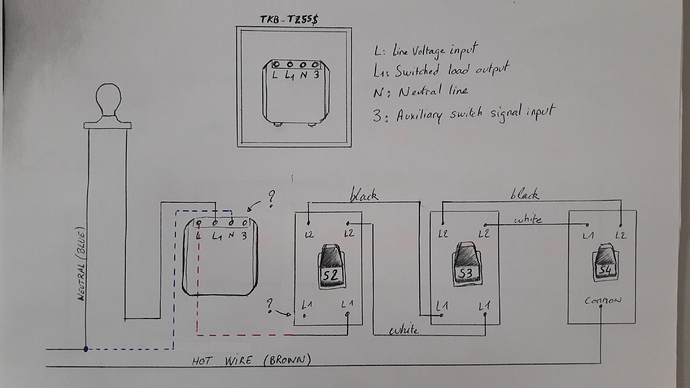 TKB-TZ55$
L L1 N 3
L: Line Voltage input
L1: Switched load output
N: Neutral line
3: Auxiliary switch signal input
NEUTRAL (BLUE)
L L1 N 3
?
?
black
black
white
white
L2 L2
S2
L1 L1
L2 L2
S3
L1 L1
L1 L2
S4
COMMON
HOT WIRE (BROWN)